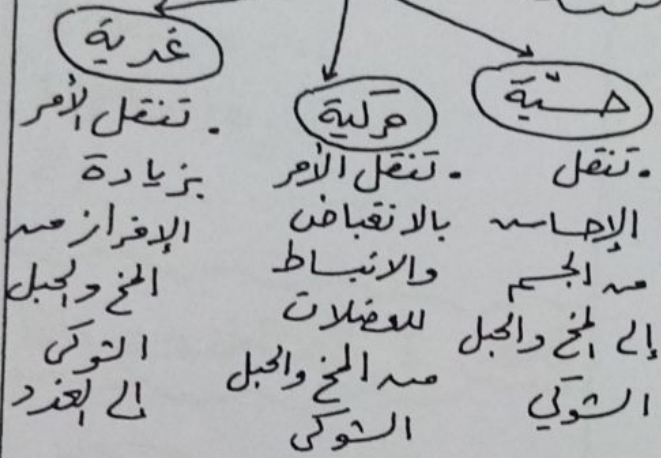 حسّية
. تنقل
الإحساس
من الجسم
إلى المخ والحبل
الشوكي
حركية
. تنقل الأمر
بالانقباض
والانبساط
للعضلات
من المخ والحبل
الشوكى
غدية
. تنقل الأمر
بزيادة
الإفراز من
المخ والحبل
الشوكى
إلى الغدد